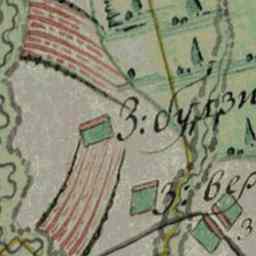 З: будзи
З: вер
З